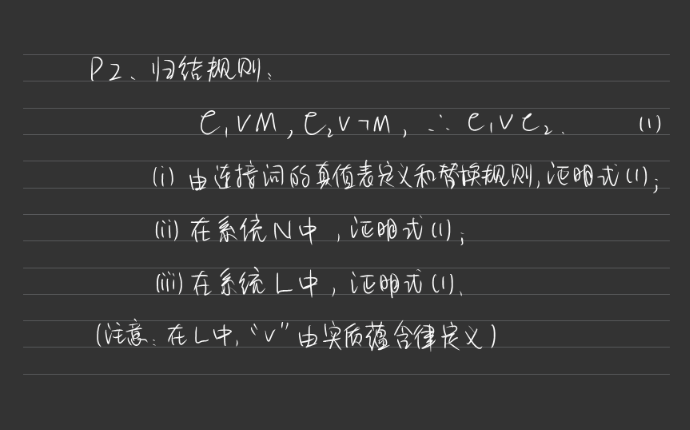 P2、归结规则:
C₁∨M, C₂∨¬M, ∴ C₁∨C₂. (1)
(i) 由连接词的真值表定义和替换规则,证明式(1);
(ii) 在系统N中,证明式(1);
(iii) 在系统L中,证明式(1).
(注意:在L中,“∨”由实质蕴含律定义)